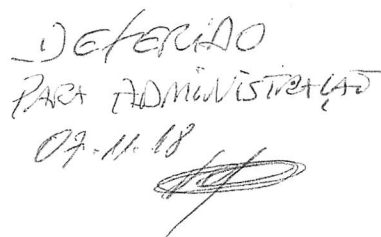 DEFERIDO
PARA ADMINISTRAÇÃO
07.11.18